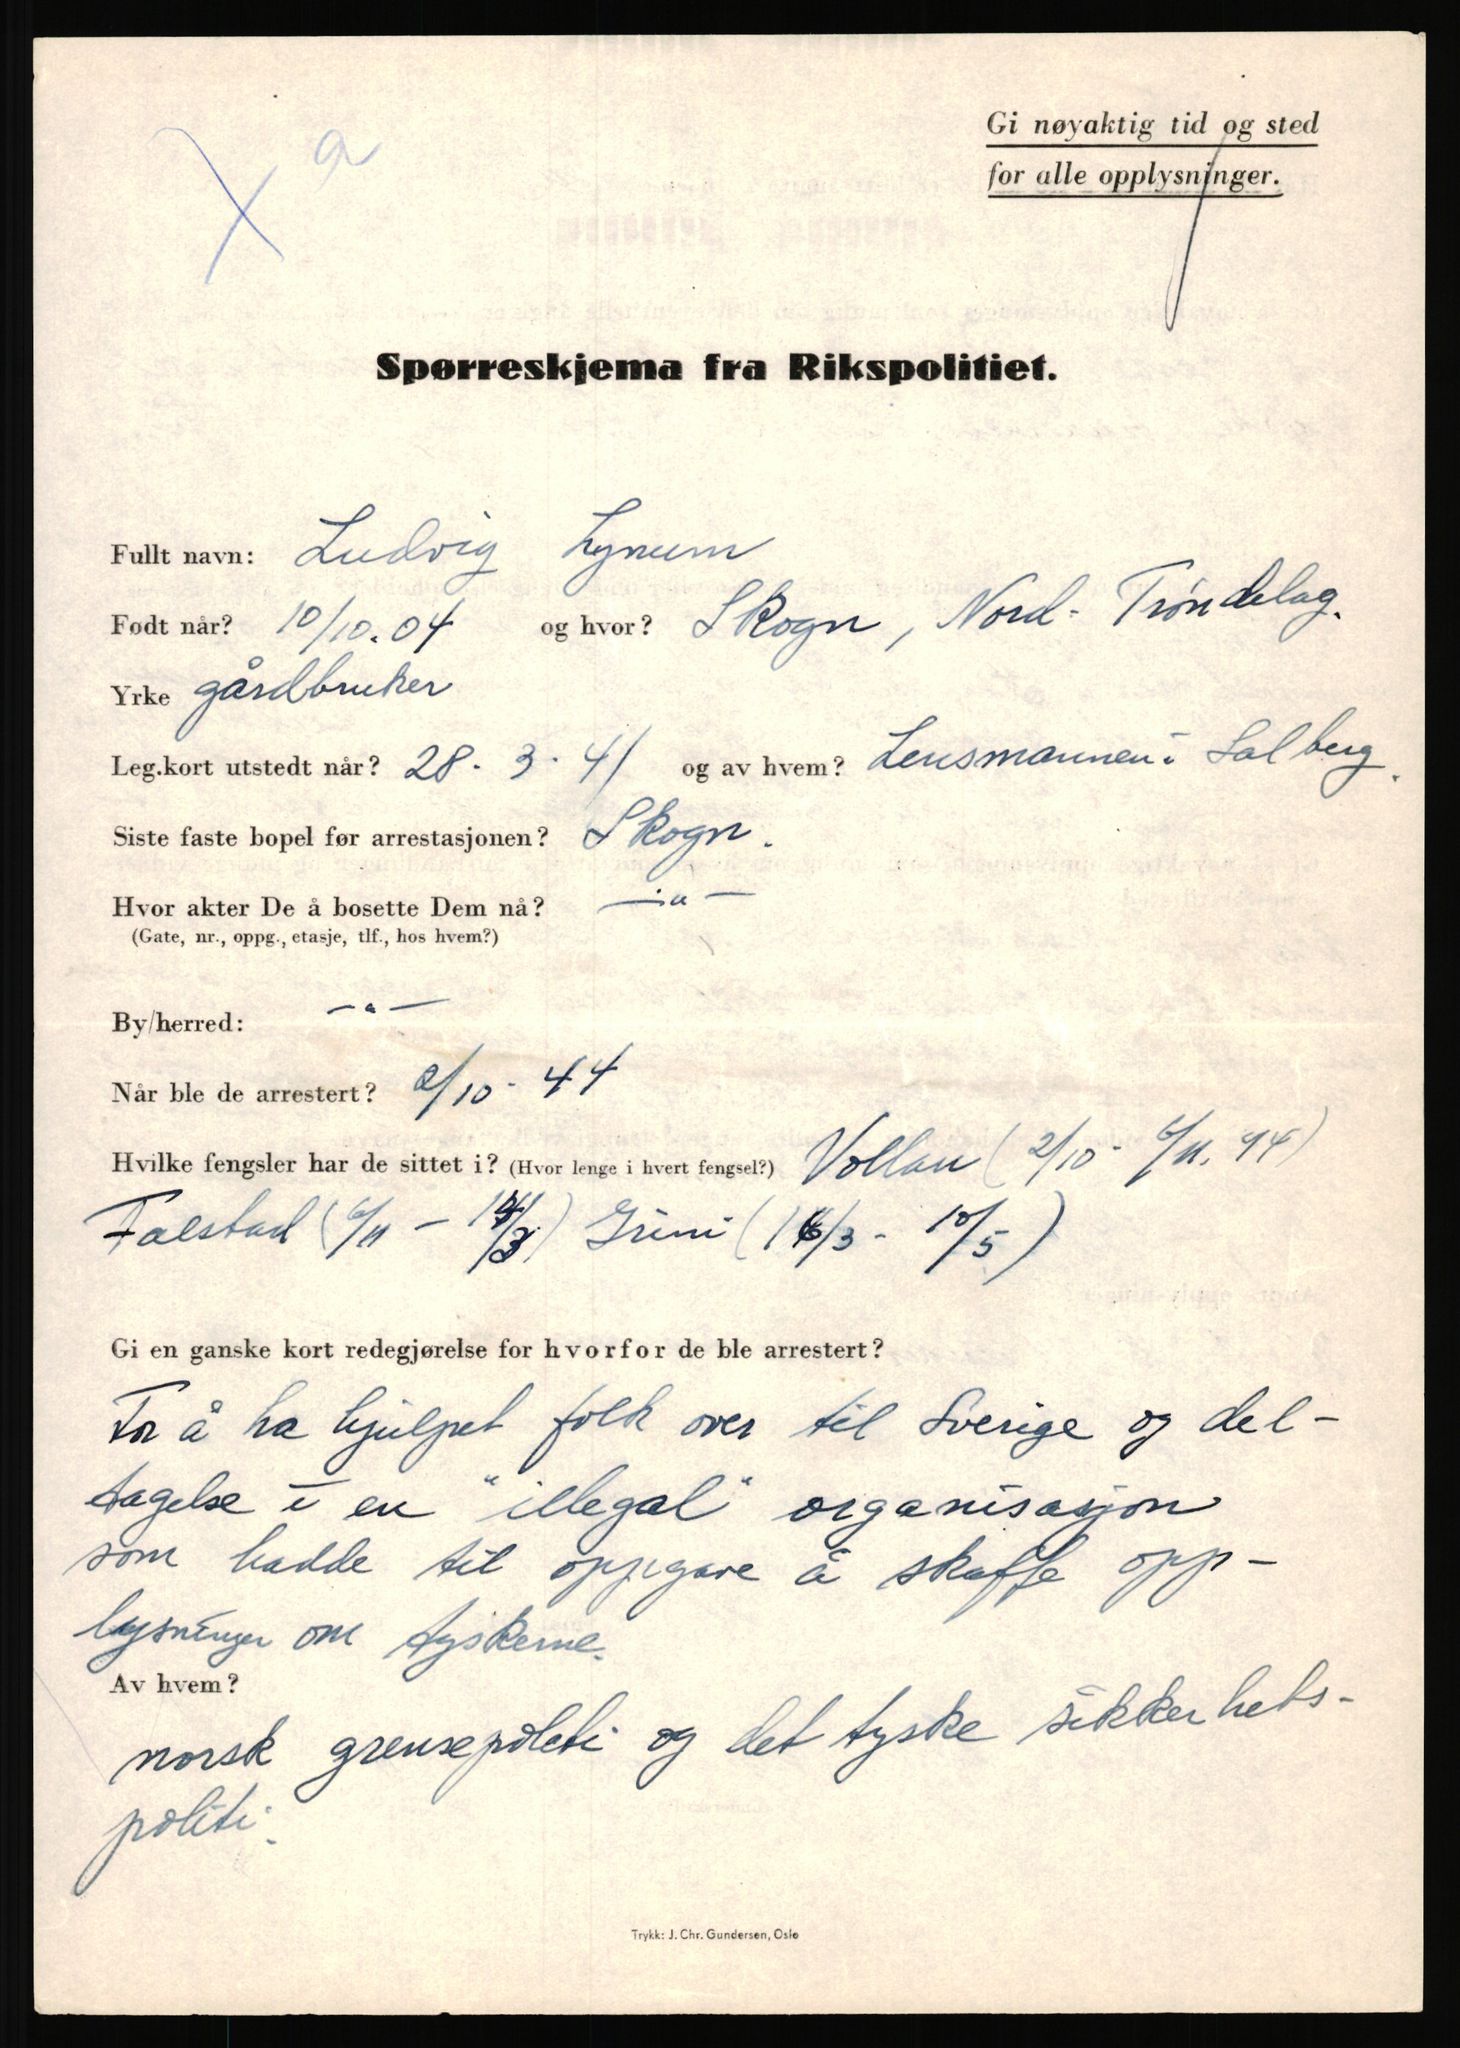 a
Gi nøyaktig tid og sted
for alle opplysninger.
Spørreskjema fra Rikspolitiet.
Fullt navn: Ludvig Lynum
Født når? 10/10.04 og hvor? Skogn, Nord-Trøndelag.
Yrke gårdbruker
Leg.kort utstedt når? 28-3-41 og av hvem? Lensmannen i Salberg.
Siste faste bopel før arrestasjonen? Skogn.
Hvor akter De å bosette Dem nå? —"—
(Gate, nr., oppg., etasje, tlf., hos hvem?)
By/herred: —"—
Når ble de arrestert? 2/10-44
Hvilke fengsler har de sittet i? (Hvor lenge i hvert fengsel?) Vollan (2/10-6/11.44)
Falstad (6/11 – 14/3) Grini (16/3 - 10/5)
Gi en ganske kort redegjørelse for hvorfor de ble arrestert?
For å ha hjulpet folk over til Sverige og del-
tagelse i en "illegal" organisasjon
som hadde til oppgave å skaffe opp-
lysninger om tyskerne.
Av hvem?
norsk grensepoleti og det tyske sikkerhets-
politi.
Trykk: J. Chr. Gundersen, Oslo